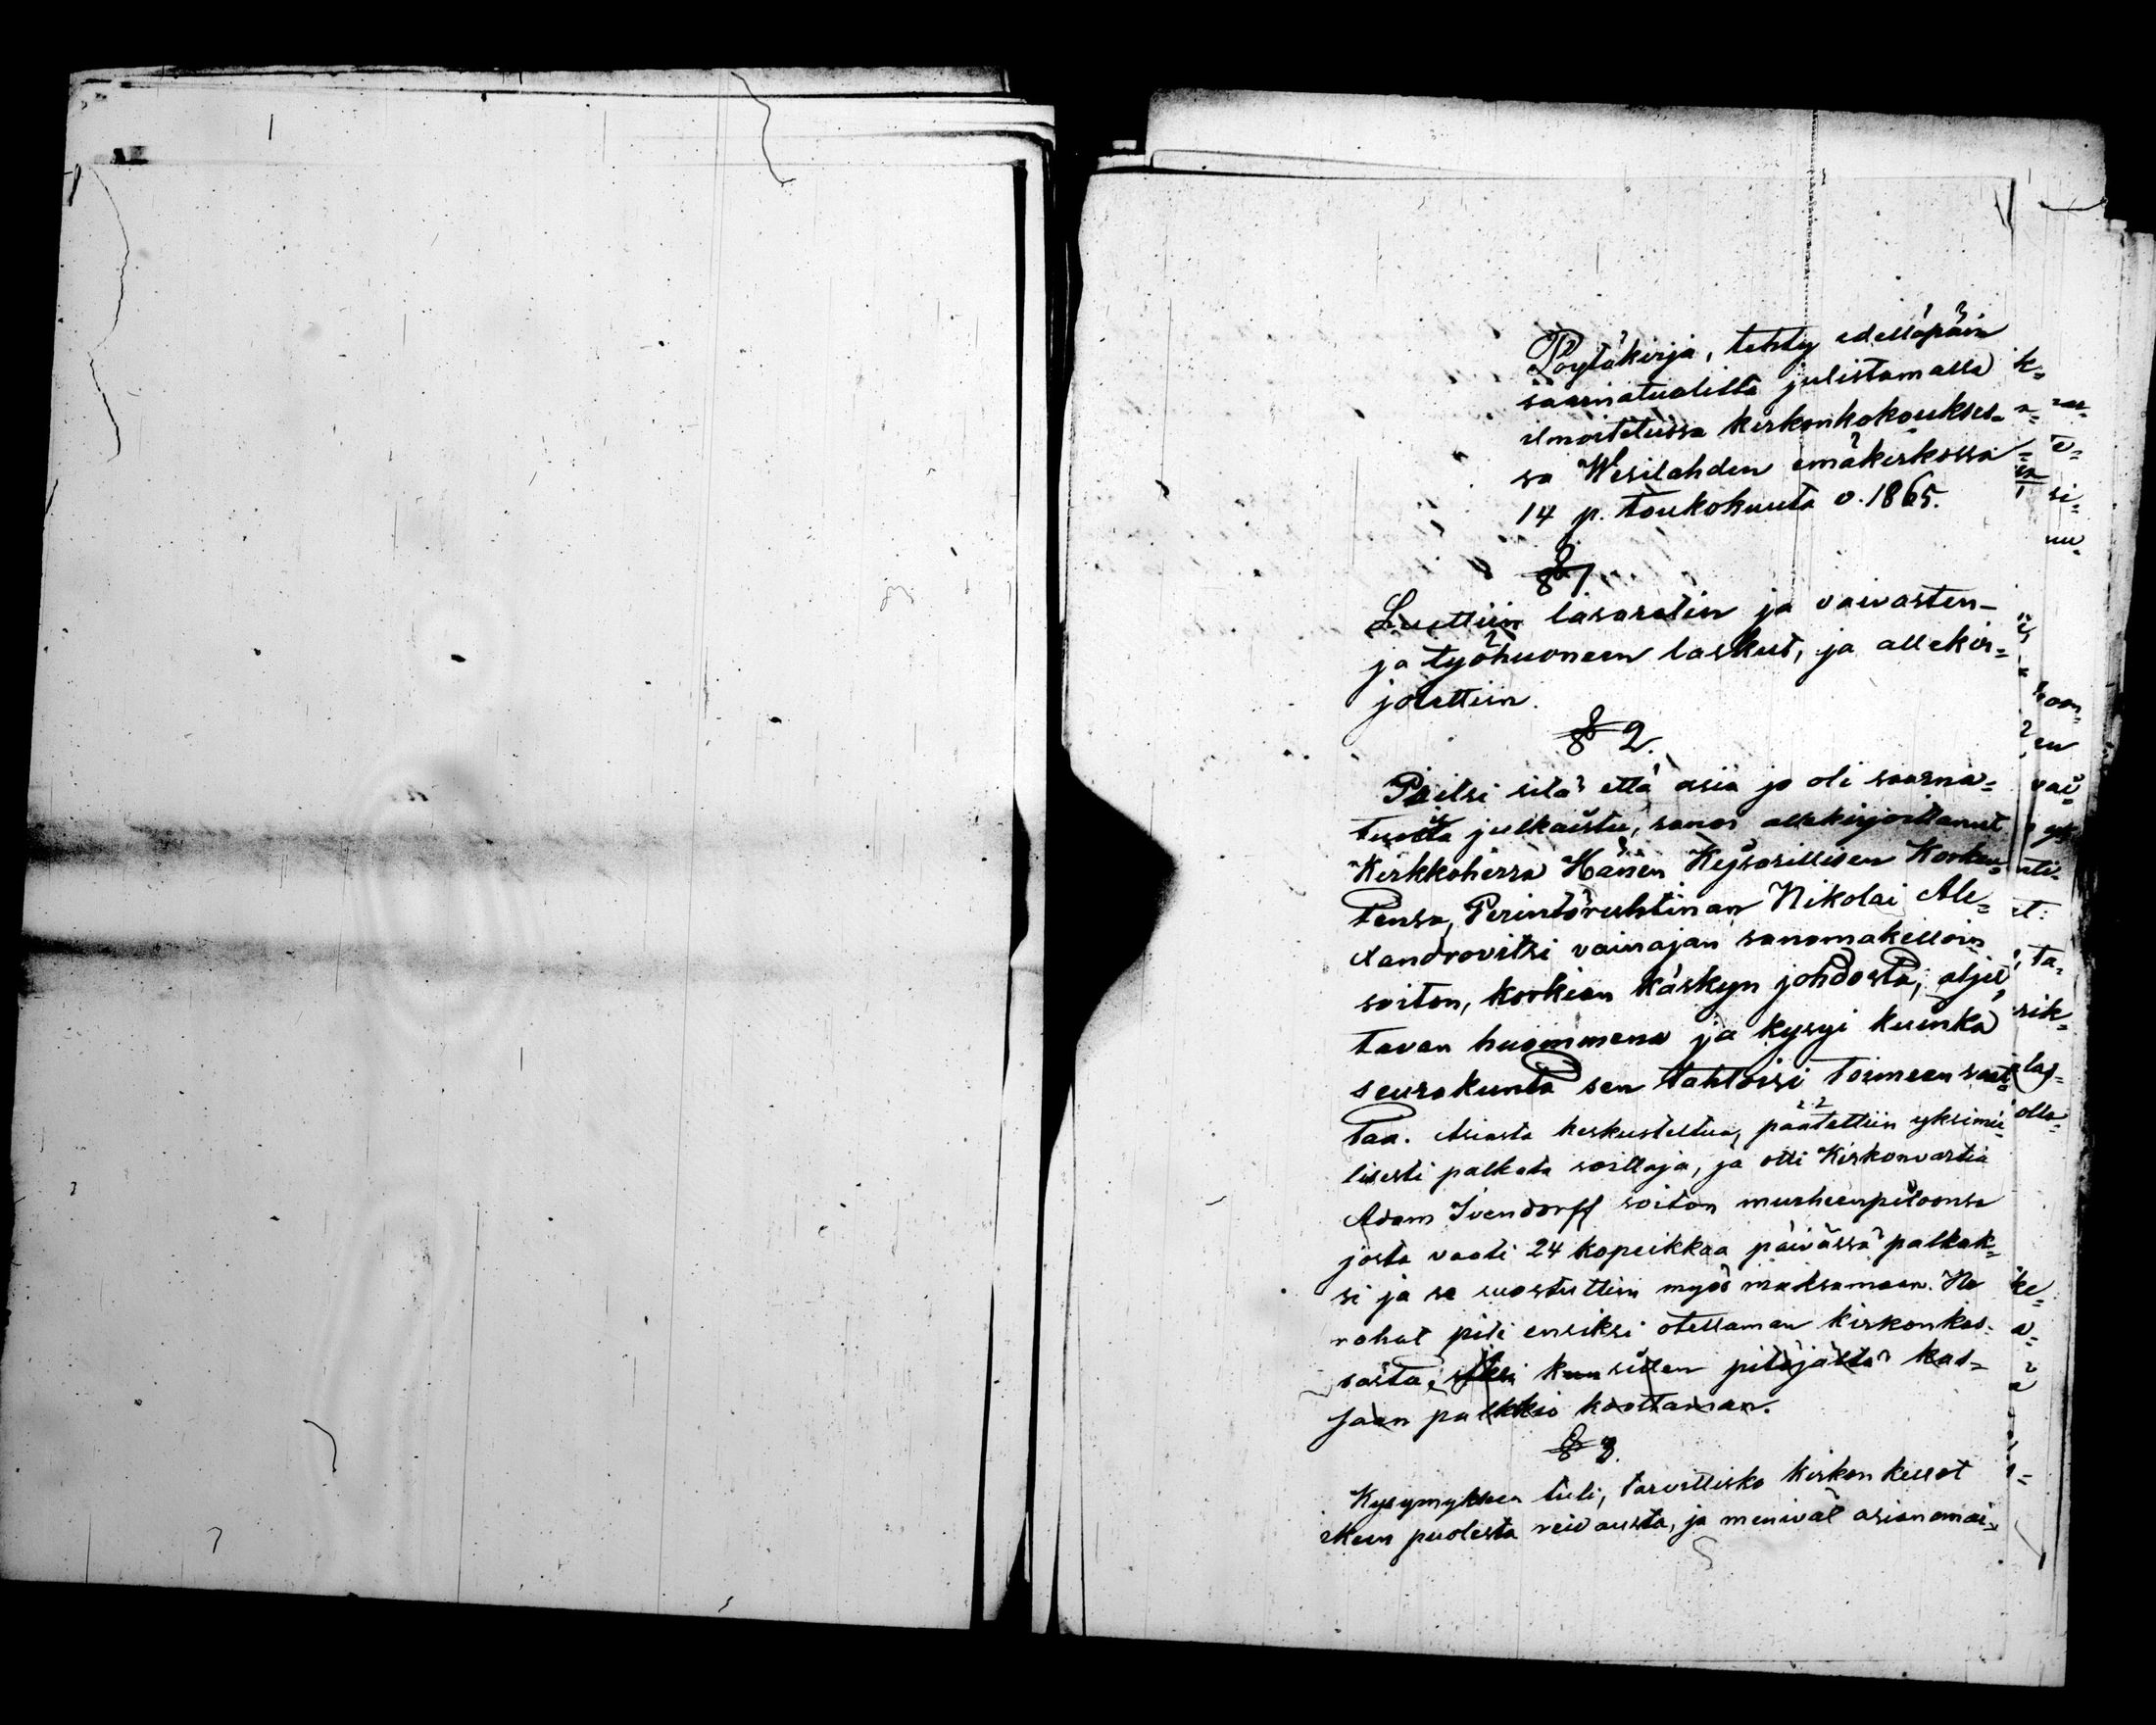 Pöytäkirja, tehty edelläpäin
saarnatuolilta julistamalla
ilmoitetussa kirkonkokoukses-
sa Wesilahden emäkirkossa
14 p. Toukokuuta v. 1865.
§ 1.
Luettiin lasaretin ja vaivasten-
ja työhuoneen laskut, ja allekir=
joitettiin.
§ 2.
Paitsi sitä että asia jo oli saarna=
tuolista julkaistu, sanoi allekirjoittanut
Kirkkoherra Hänen Kejsarillisen Korkeu=
tensa, Perintöruhtinan Nikolai Ale=
xandrovitsi vainajan sanomakelloin
soiton, korkian käskyn johdosta, aljet,
tavan huommena ja kysyi kuinka
seurakunta sen tahtoisi toimeen saat=
taa. Asiasta keskusteltua, päätettiin yksimie=
lisesti palkata soittaja, ja otti Kirkonvartia
Adam Ivendorff soiton murheenpitoonsa
josta vaati 24 kopeikkaa päivässä palkak=
si ja se suostuttiin myös maksamaan. Ne
rahat piti ensiksi otettaman kirkonkas-
sasta, siksi kun sitten pitäjältä kas=
saan palkkio koottaman.
§ 3.
Kysymykseen tuli, tarvittisko kirkon kellot
itken puolesta reivausta, ja menivät asianomai=